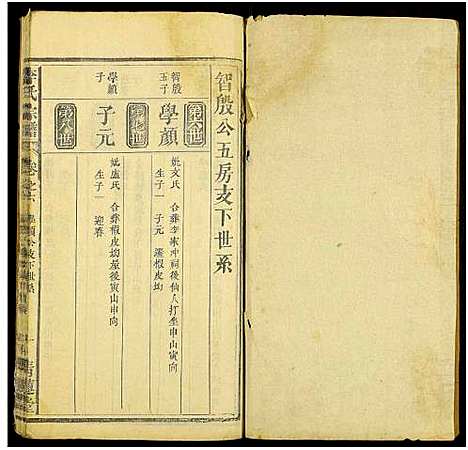 智殷公五房支下世系
第六世
智殷
玉子
學顏
妣文氏 合葬李家冲祠後仙人打坐申山寅向
生子一 子元 遷椵皮坳
第七世
學顏
子
子元
妣盧氏 合葬椵皮坳屋後寅山申向
生子一 迎春
第八世
氏宗譜 卷之六 學顏公支下世系
青蓮堂